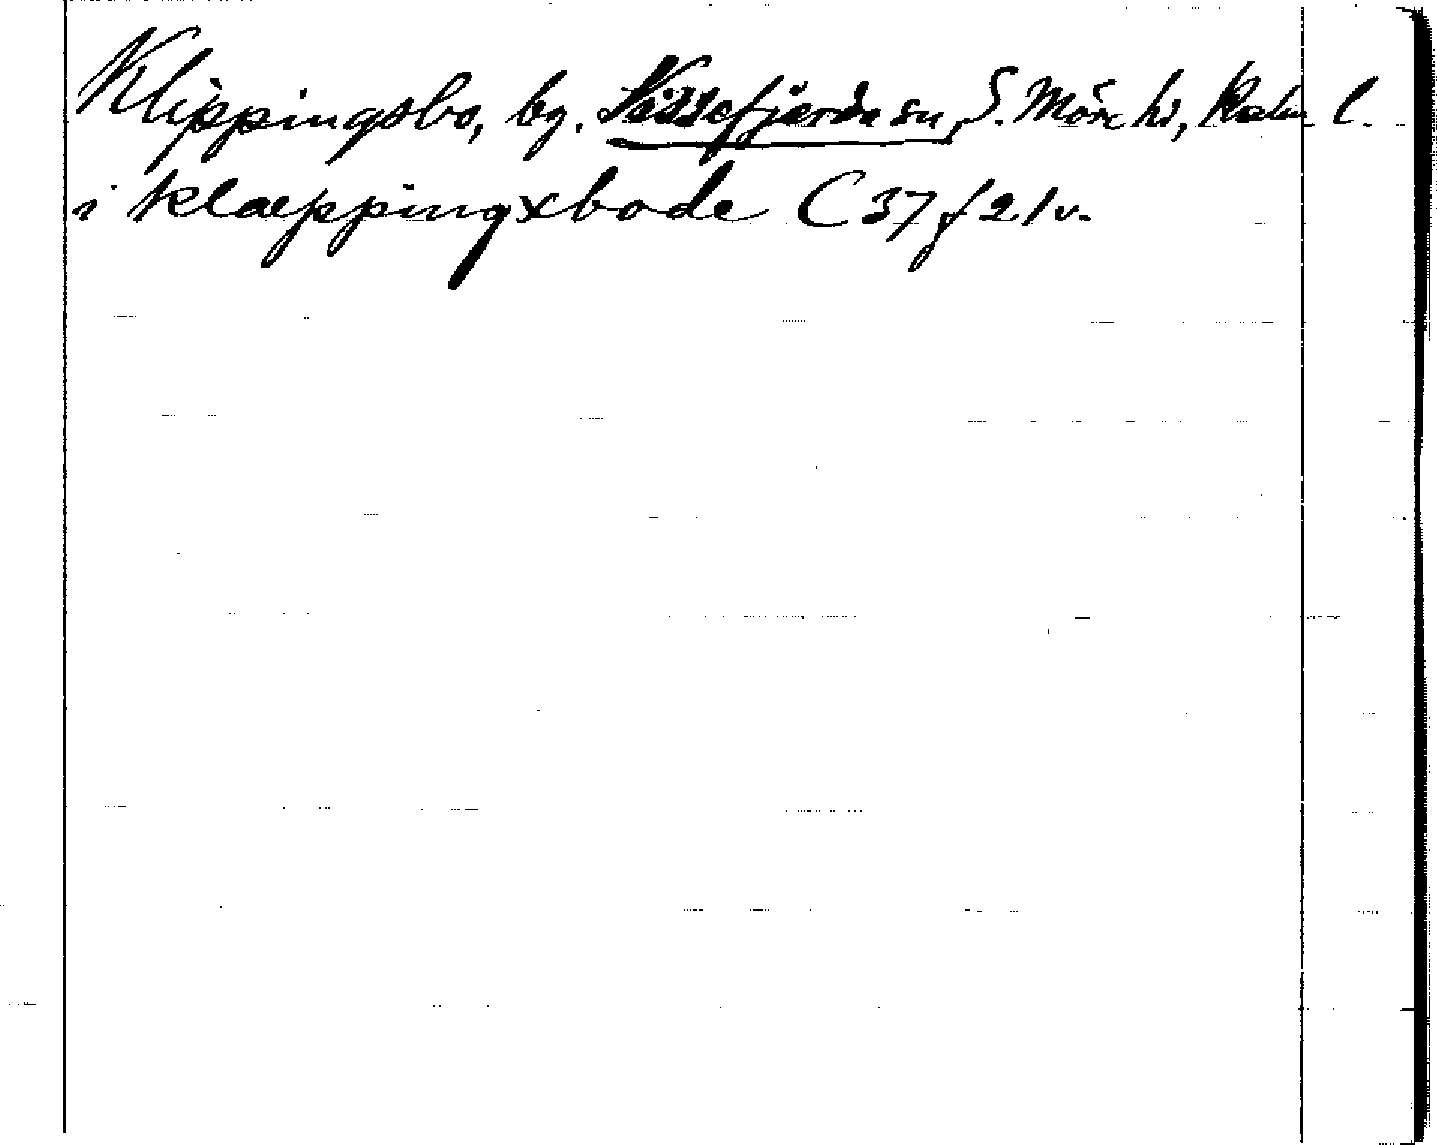 Klippingsbo, by. Vissefjärda sn, S. Möre hd, Kalm l.
i klæppingxbode C 37 f 21 v.